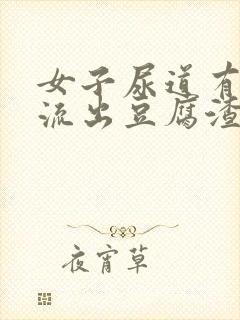 女子尿道有
流出豆腐渣
夜宵草